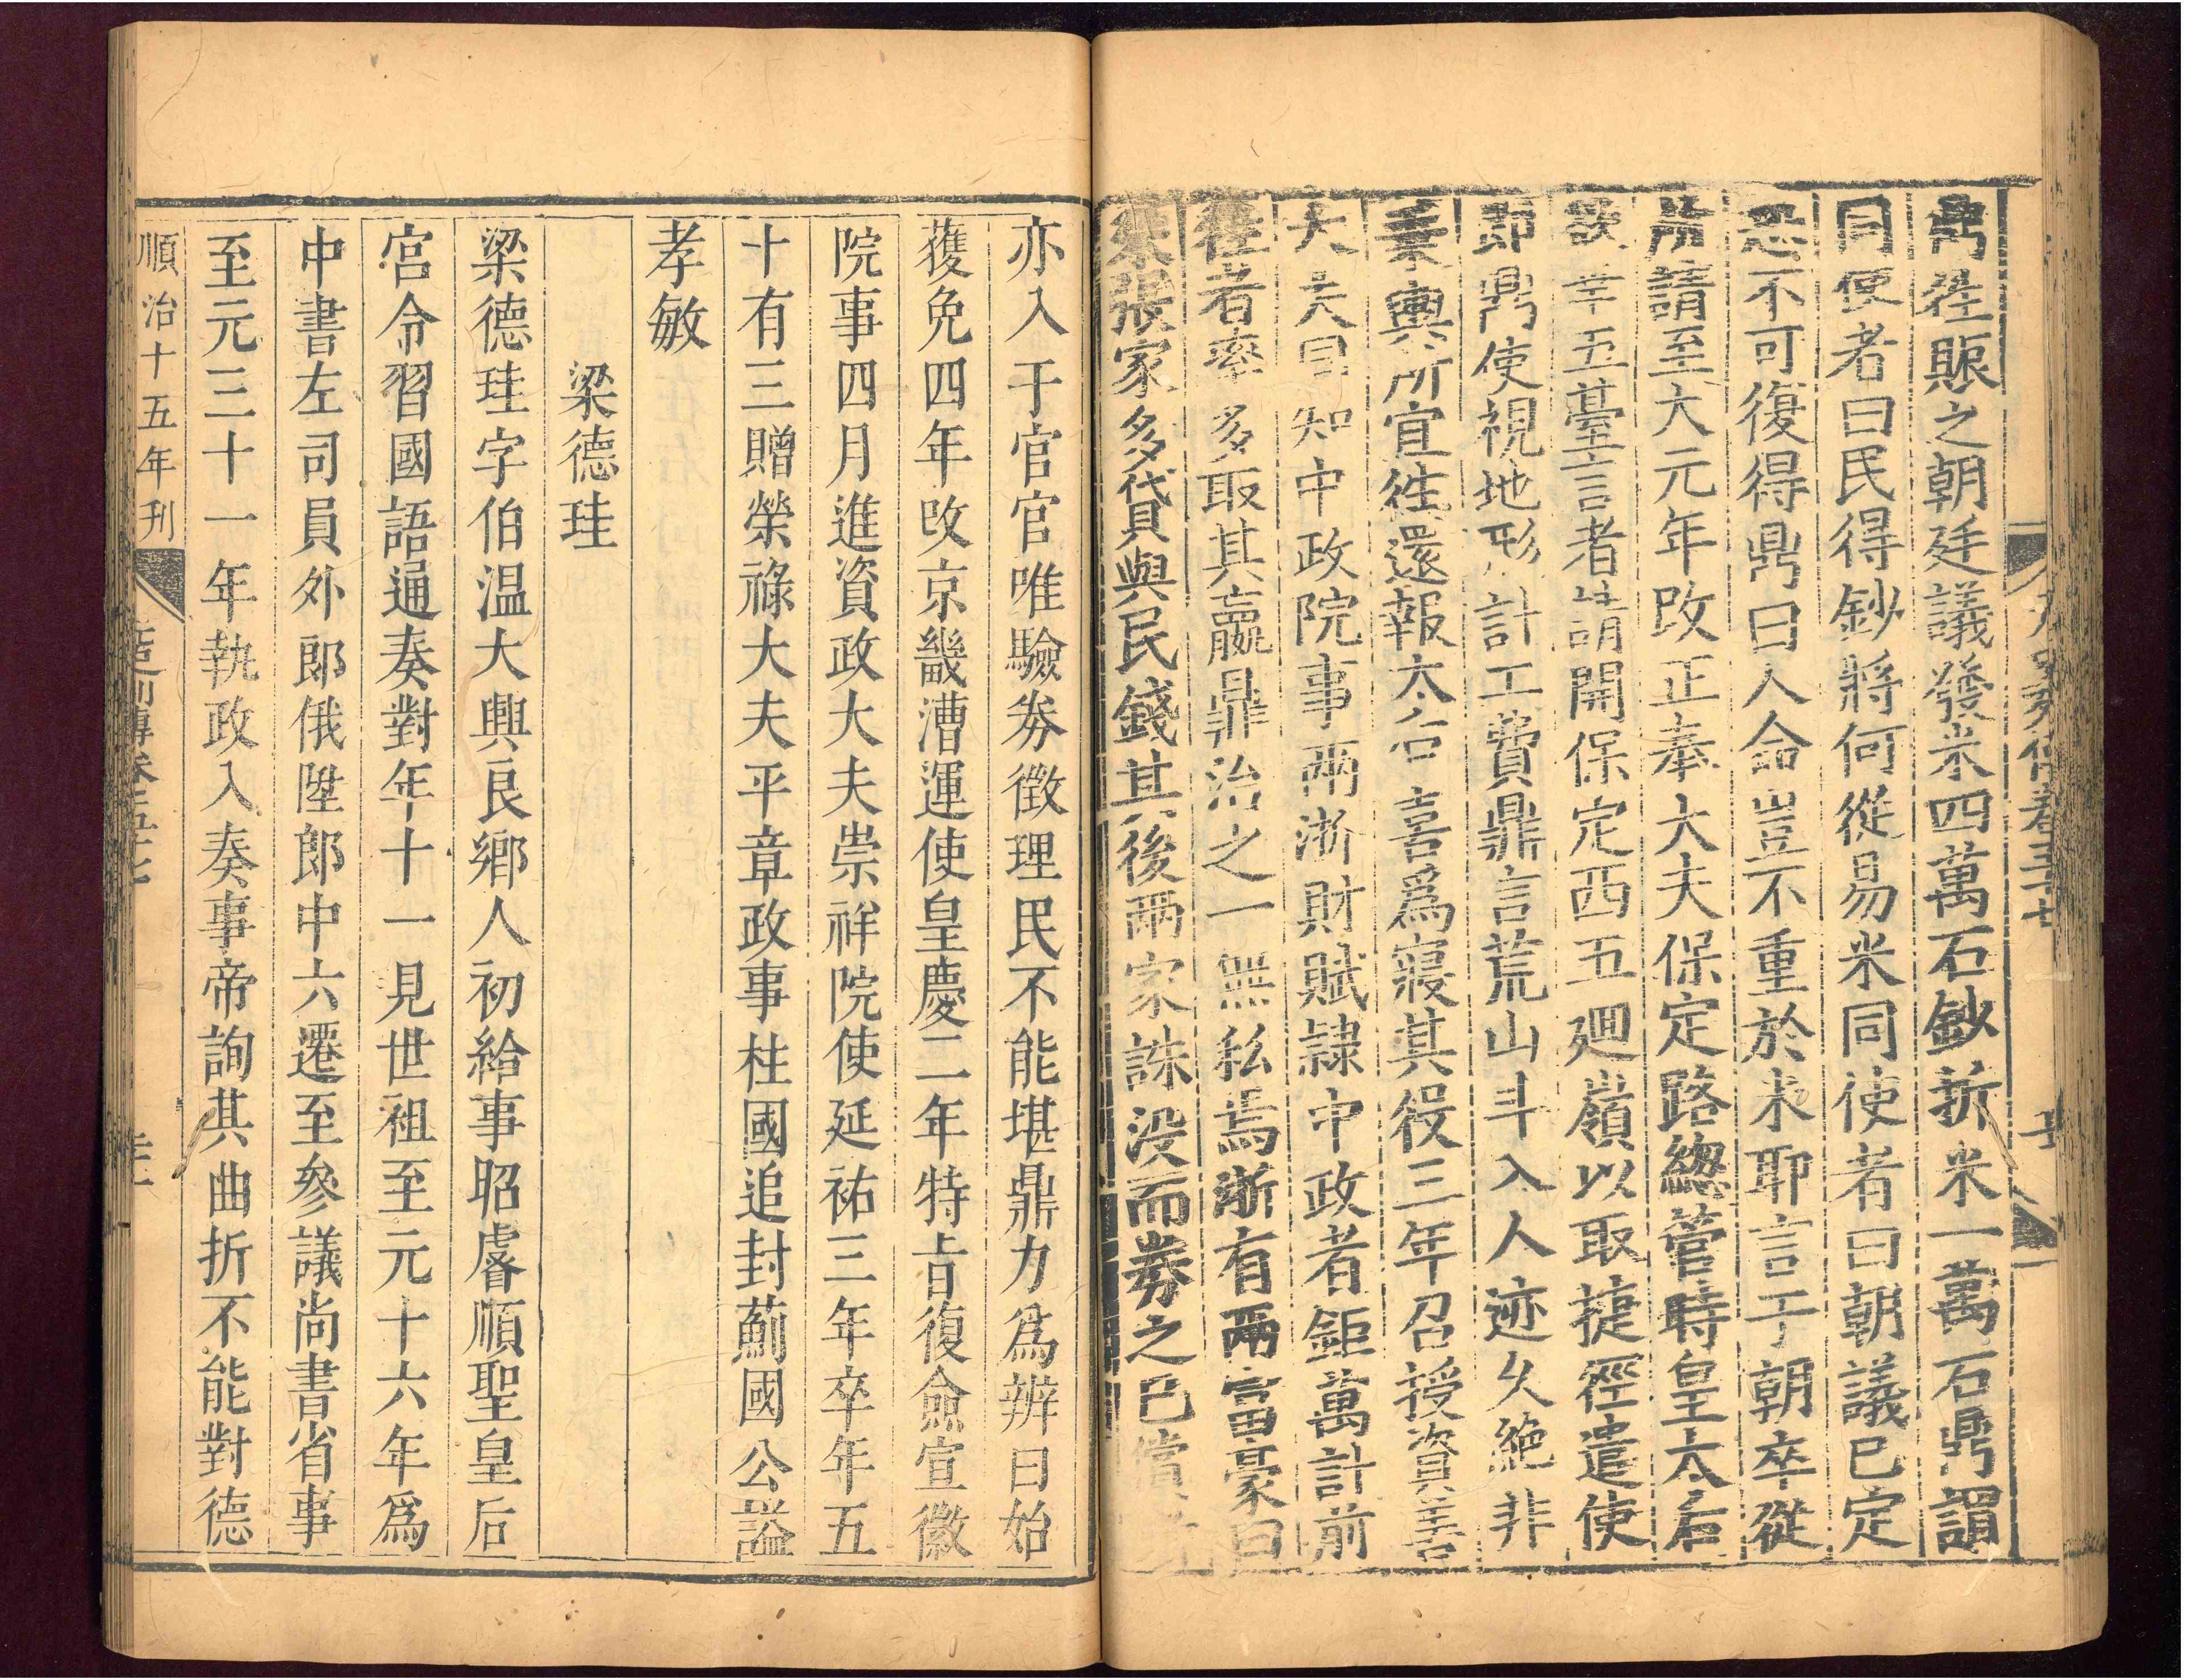 鼎往賑之朝廷議發米四萬石鈔折米一萬石鼎謂
同使者曰民得鈔將何從易米同使者曰朝議已定
恐不可復得鼎曰人命豈不重於米耶言于朝卒從
所請至大元年改正奉大夫保定路總管時皇太后
欲幸五臺言者請開保定西五迴嶺以取捷徑遣使
即鼎使視地形計工費鼎言荒山斗入人迹久絕非
乘輿所宜往還報太后喜爲寢其役三年召授資善
大夫同知中政院事兩浙財賦隷中政者鉅萬計前
往者率多取其贏鼎治之一無私焉浙有兩富豪曰
朱張家多貸與民錢其後兩家誅没而劵之已償者
亦入于官官唯驗劵徵理民不能堪鼎力爲辨曰始
獲免四年改京畿漕運使皇慶二年特旨復僉宣徽
院事四月進資政大夫崇祥院使延祐三年卒年五
十有三贈榮祿大夫平章政事柱國追封薊國公謚
孝敏
梁德珪
梁德珪字伯温大興良鄉人初給事昭睿順聖皇后
宮令習國語通奏對年十一見世祖至元十六年爲
中書左司員外郎俄陞郎中六遷至參議尚書省事
至元三十一年執政入奏事帝詢其曲折不能對德
順治十五年刋